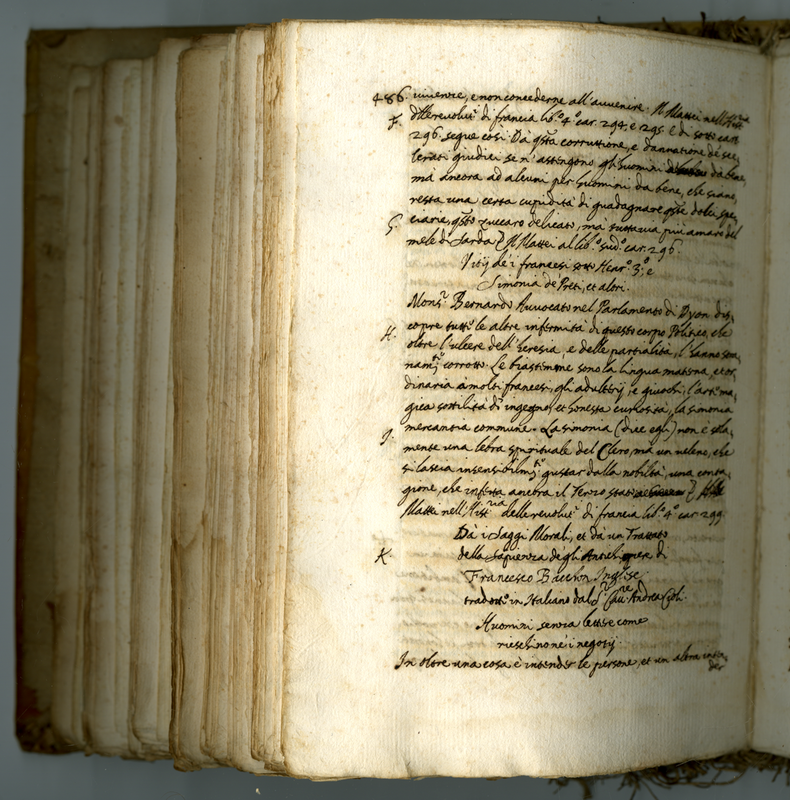 486. vivenze, e non concederne all'avvenire. Il Mattei nell'
F. delle revolut.ⁱ di francia lib.º 4.º car. 294. e 295. E di sotto car.
296. segue così. Dà q̃sta corruttione, e dannatione de' sce,
lerati giudici se n'astengono gli huomini da bene,
mà ancora ad alcuni per huomini da bene, che siano,
resta una certa cupidità di guadagnare q̃ste dolci spe,
G. ciarie, q̃sto zuccaro delicato, mà tuttavia più amaro del
mele di Sarda} Il Mattei al lib.º sud.º car. 296.
Vitij dè i francesi sotto Henr.º 3.º e
Simonia de Preti, et altri.
Mons.ʳ Bernardo Avvocato nel Parlamento di Dyon dis,
H. copre tutte le altre infermità di questo corpo Politico, che
oltre l'ulcere dell'heresia, e delle partialità, l'hanno som,
nam.ᵗᵉ corrotto. Le biastemme sono la lingua materna, et or,
dinaria à molti francesi, gli adulterij, e giuochi, l'arte ma,
gica sottilità d'ingegno, et honesta curiosità, la simonia
mercantia commune. La simonia (dice egli) non è sola,
I. mente una lebra spirituale del Clero, mà un veleno, che
si lascia insensibilm.ᵗᵉ gustar dalla nobiltà, una conta,
gione, che infetta ancora il Terzo stato
Mattei nell'Hist.ʳⁱᵃ delle revolut.ⁱ di francia lib.º 4.º car. 299.
Dà i Saggi Morali, et dà un Trattato
K. della Sapienza degli Antichi di
Francesco Bacchon Inglese
tradotto in Italiano dal S.ʳ Cau.ʳᵉ Andrea Cioli.
Huomini senza lettere come
rieschino nè i negotij.
In oltre una cosa è intender le persone, et un altra inten,
der